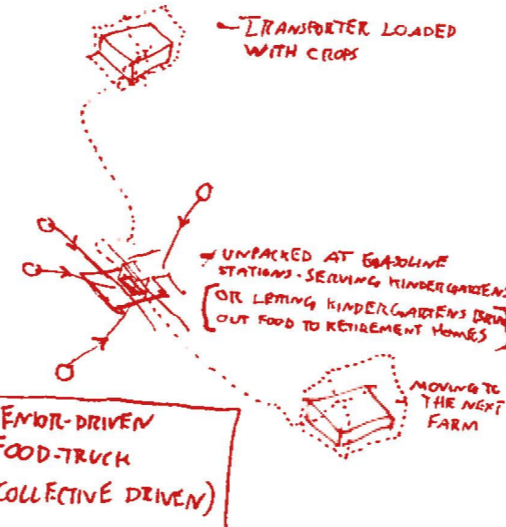 TRANSPORTER LOADED
WITH CROPS
UNPACKED AT GASOLINE
STATIONS - SERVING KINDERGARTENS
(OR LETTING KINDERGARTENS
OUT FOOD TO RETIREMENT HOMES)
MOVING TO
THE NEXT
FARM
ENIOR-DRIVEN
FOOD-TRUCK
COLLECTIVE DRIVEN)